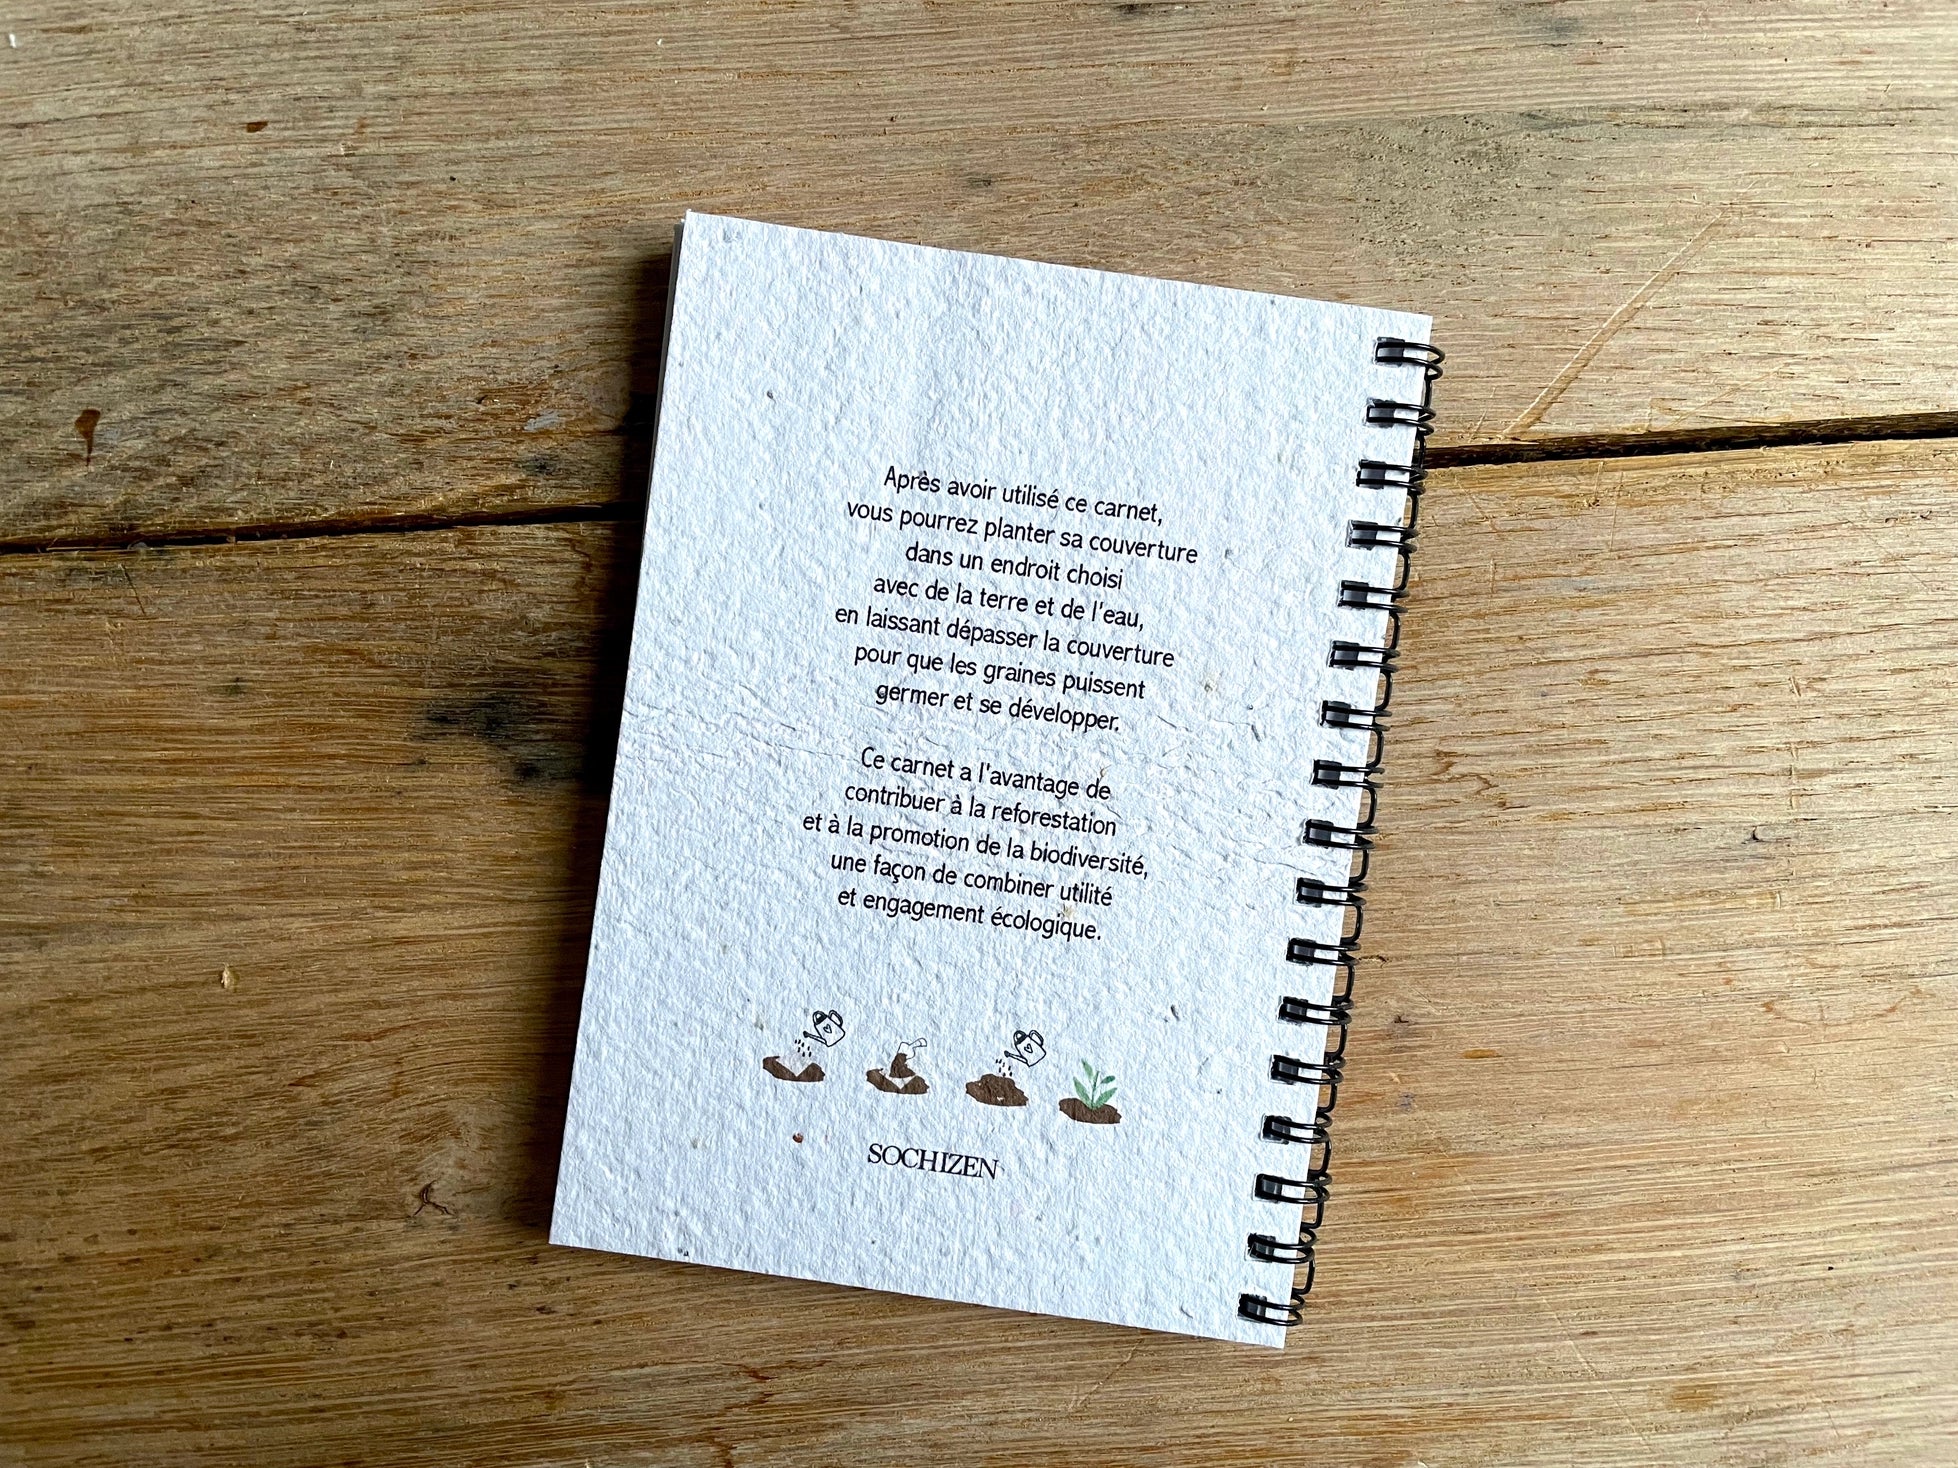 Après avoir utilisé ce carnet,
vous pourrez planter sa couverture
dans un endroit choisi
avec de la terre et de l'eau,
en laissant dépasser la couverture
pour que les graines puissent
germer et se développer.
Ce carnet a l'avantage de
contribuer à la reforestation
et à la promotion de la biodiversité,
une façon de combiner utilité
et engagement écologique.
SOCHIZEN